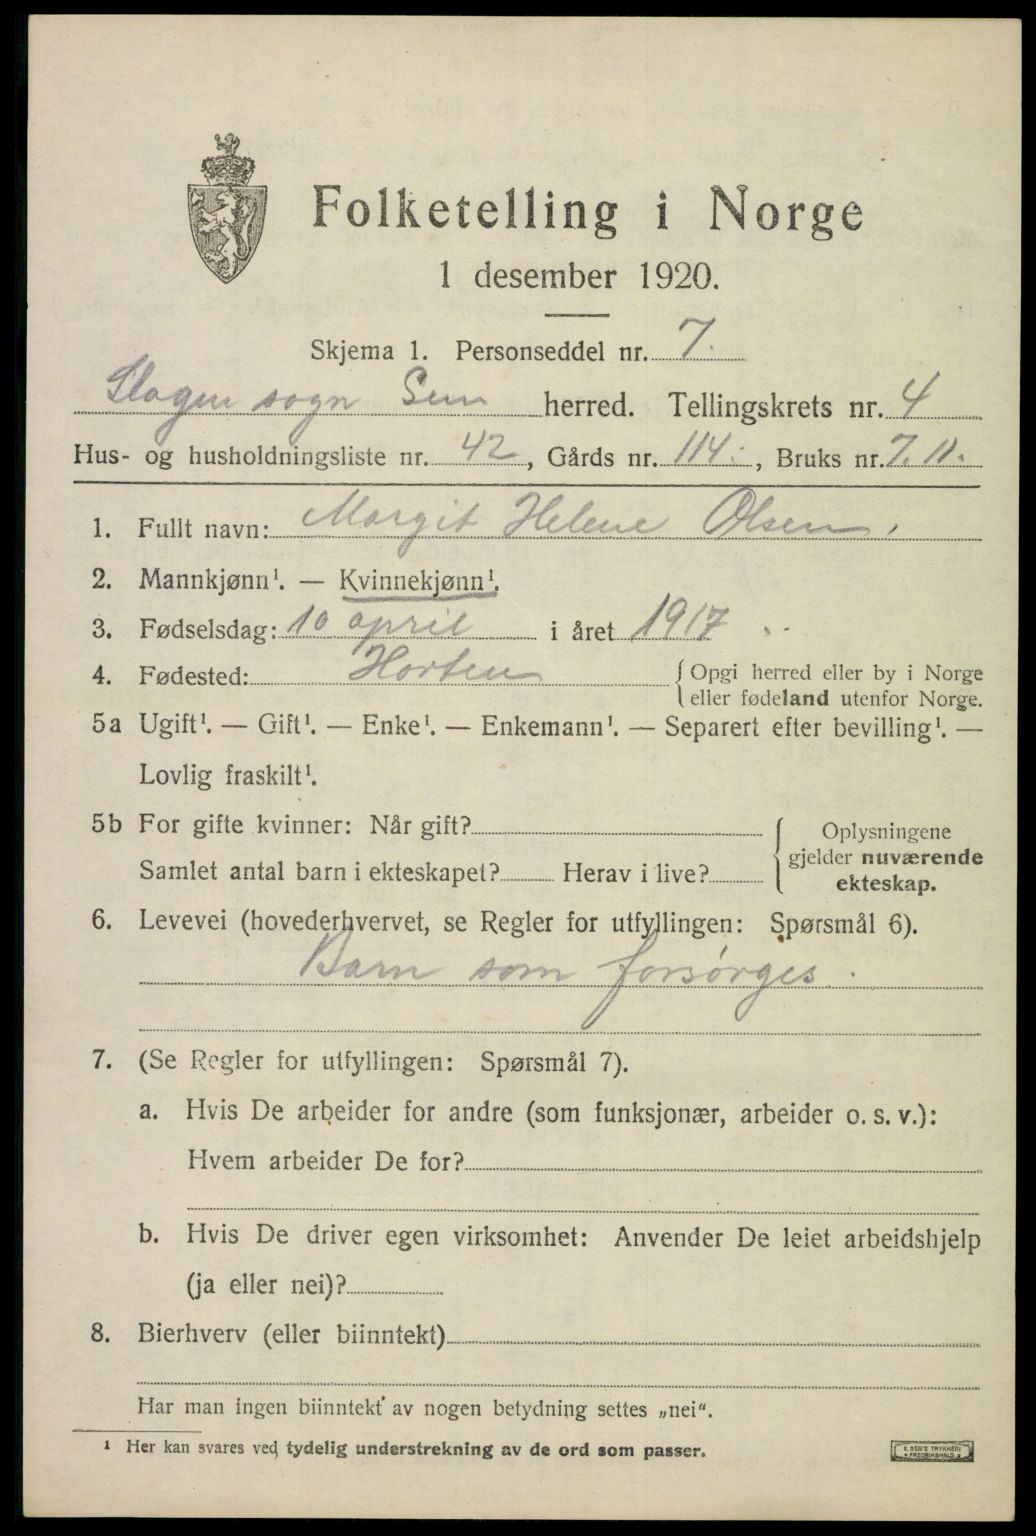 Folketelling i Norge
1 desember 1920.
Skjema 1. Personseddel nr. 7.
Slagen sogn Sem herred. Tellingskrets nr. 4
Hus- og husholdningsliste nr. 42, Gårds nr. 114, Bruks nr. 7.11.
1. Fullt navn: Margit Helene Olsen.
2. Mannkjønn¹. — Kvinnekjønn¹.
3. Fødselsdag: 10 april i året 1917
4. Fødested: Horten { Opgi herred eller by i Norge
eller fødeland utenfor Norge.
5a Ugift¹. — Gift¹. — Enke¹. — Enkemann¹. — Separert efter bevilling¹. —
Lovlig fraskilt¹.
5b For gifte kvinner: Når gift? { Oplysningene
gjelder nuværende
Samlet antal barn i ekteskapet? Herav i live?
ekteskap.
6. Levevei (hovederhvervet, se Regler for utfyllingen: Spørsmål 6).
Barn som forsørges.
7. (Se Regler for utfyllingen: Spørsmål 7).
a. Hvis De arbeider for andre (som funksjonær, arbeider o. s. v.):
Hvem arbeider De for?
b. Hvis De driver egen virksomhet: Anvender De leiet arbeidshjelp
(ja eller nei)?
8. Bierhverv (eller biinntekt)
Har man ingen biinntekt av nogen betydning settes „nei“.
¹ Her kan svares ved tydelig understrekning av de ord som passer.
E. SEM'S TRYKKERI
FREDRIKSHALD